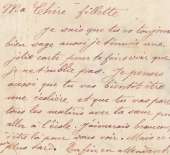 Ma Chère fillette
je sais que tu es toujours
bien sage aussi je t'envoie une
jolie carte pour te faire voir que
je ne t'oublie pas. Je pense
aussi que tu vas bientôt être
une écolière, et que tu vas par
tous les matins avec ta sœur pour
aller à l'école. J'aimerais beaucoup
être là pour vous voir
plus tard. Enfin en attendant